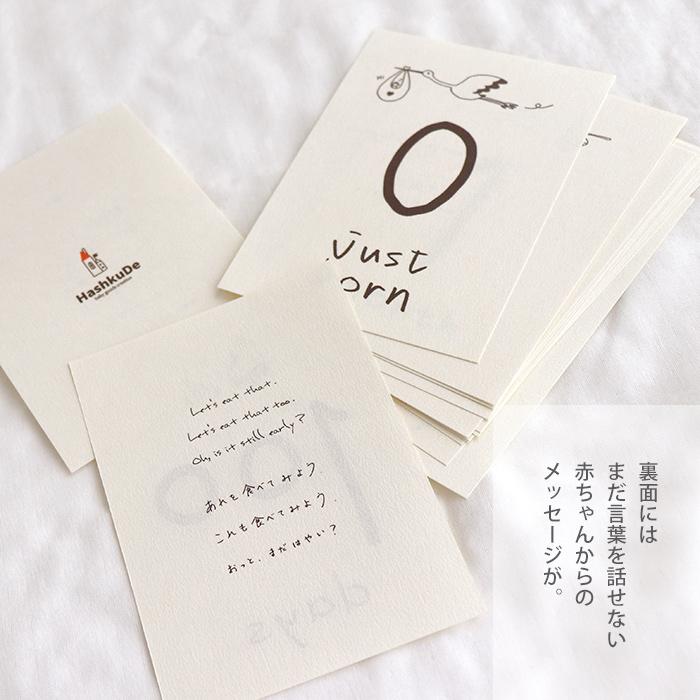 0
Just
orn
HashkuDe
baby goods creation
Let's eat that.
Let's eat that too.
Oh, is it still early?
あれも食べてみよう.
これも食べてみよう.
おっと、まだはやい?
100
days
裏面には
まだ言葉を話せない
赤ちゃんからの
メッセージが。